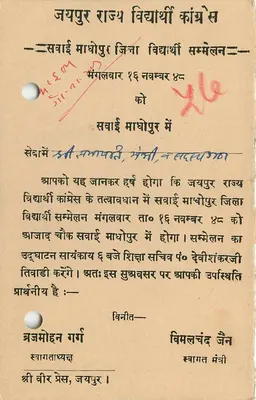 जयपुर राज्य विद्यार्थी कांग्रेस
सवाई माधोपुर जिला विद्यार्थी सम्मेलन
मंगलवार १६ नवम्बर ४८
को
सवाई माधोपुर में
सेवामें श्री सभापति, मंत्री व सदस्यगण
आपको यह जानकर हर्ष होगा कि जयपुर राज्य
विद्यार्थी कांग्रेस के तत्वावधान में सवाई माधोपुर जिला
विद्यार्थी सम्मेलन मंगलवार ता० १६ नवम्बर ४८ को
आजाद चौक सवाई माधोपुर में होगा। सम्मेलन का
उद्घाटन सायंकाय ६ बजे शिक्षा सचिव पं० देवीशंकरजी
तिवाडी करेंगे। अतः इस सुअवसर पर आपकी उपस्थिति
प्रार्थनीय है :—
विनीत—
ब्रजमोहन गर्ग विमलचंद जैन
स्वागताध्यक्ष स्वागत मंत्री
श्री वीर प्रेस, जयपुर।